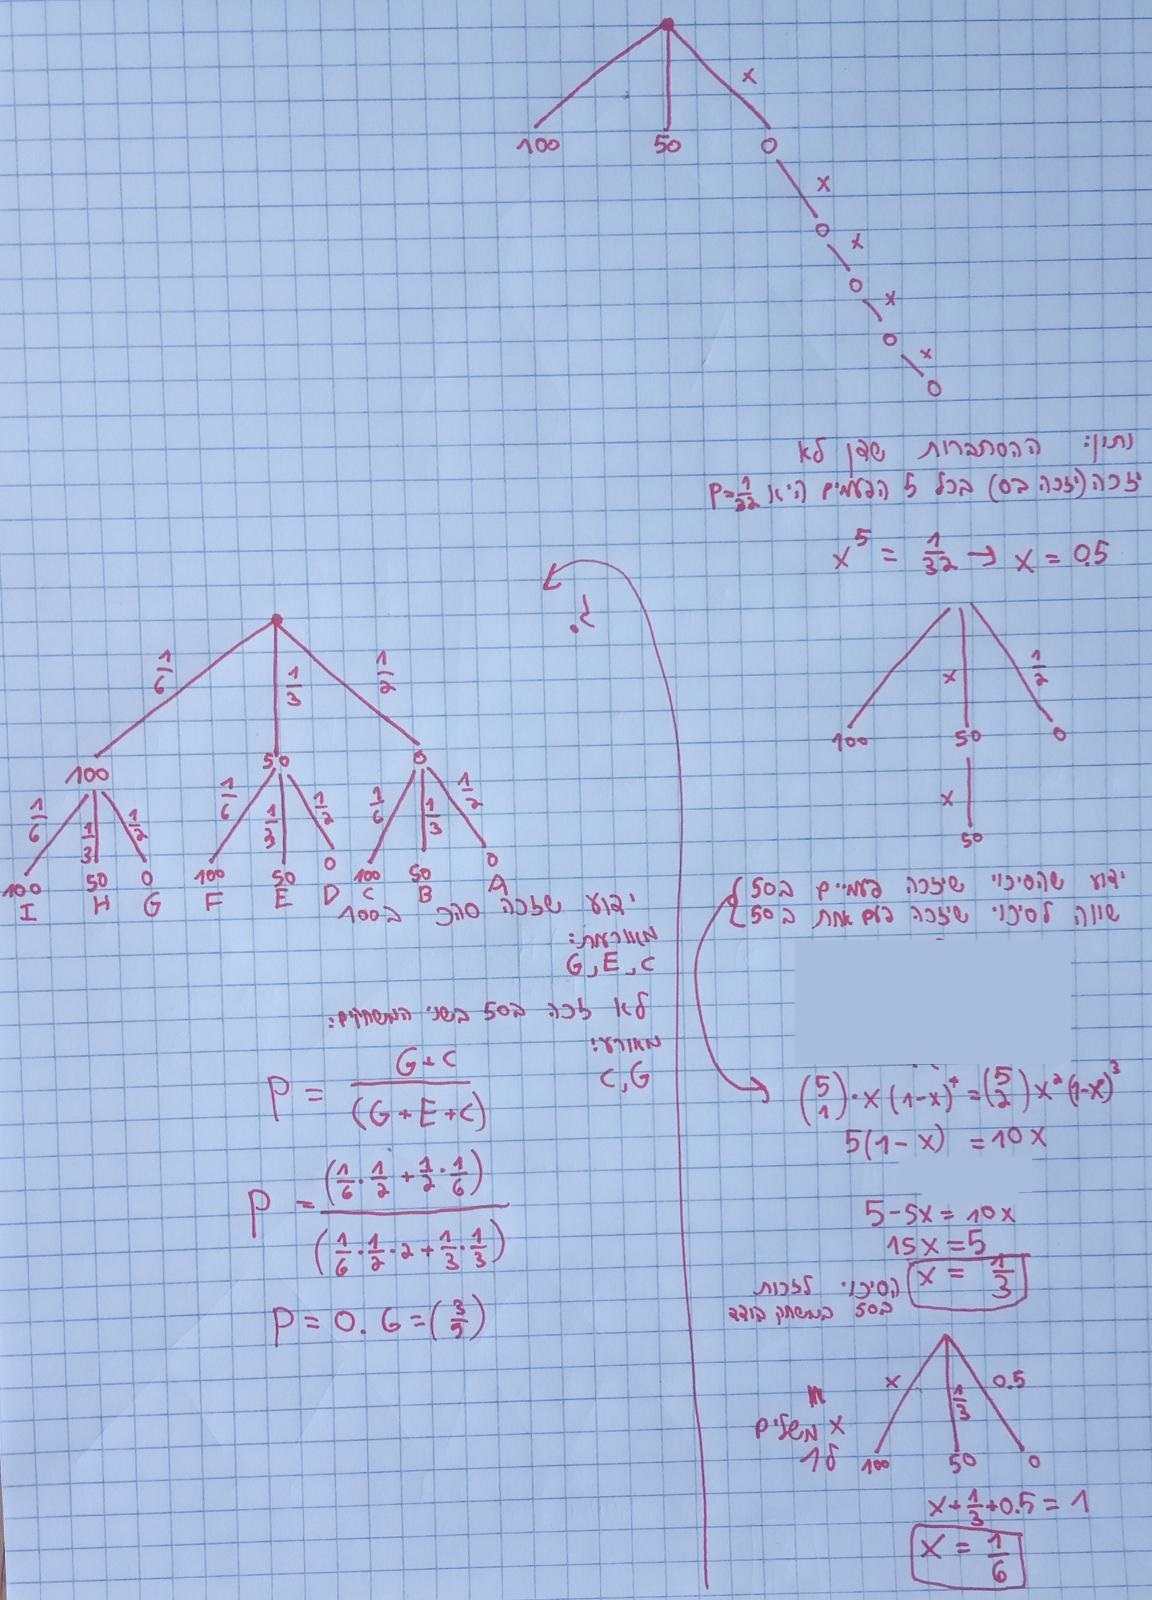 x
100 50 0
x
0
x
0
x
0
x
0
נתון: ההסתברות שדן לא
יזכה (יזכה ב0) בכל 5 הפעמים היא P=1/32
x^5 = 1/32 → x = 0.5
x 1/2
100 50 0
x
50
ידוע שהסיכוי שיזכה פעמיים ב50
שווה לסיכוי שיזכה פעם אחת ב50
(5 1)·x(1-x)^4 = (5 2)x^2(1-x)^3
5(1-x) = 10x
5-5x = 10x
15x = 5
x = 1/3
הסיכוי לזכות
ב50 במשחק בודד
x 1/3 0.5
100 50 0
x משלים
ל1
x+1/3+0.5 = 1
x = 1/6
ג.
1/6 1/3 1/2
100 50 0
1/6 1/3 1/2 1/6 1/3 1/2 1/6 1/3 1/2
100 50 0 100 50 0 100 50 0
I H G F E D C B A
ידוע שזכה סהכ ב100
מאורעות:
G,E,C
לא זכה ב50 בשני המשחקים:
מאורע:
C,G
P = G+C/(G+E+C)
P = (1/6·1/2+1/2·1/6)/(1/6·1/2·2+1/3·1/3)
P = 0.6 = (3/5)